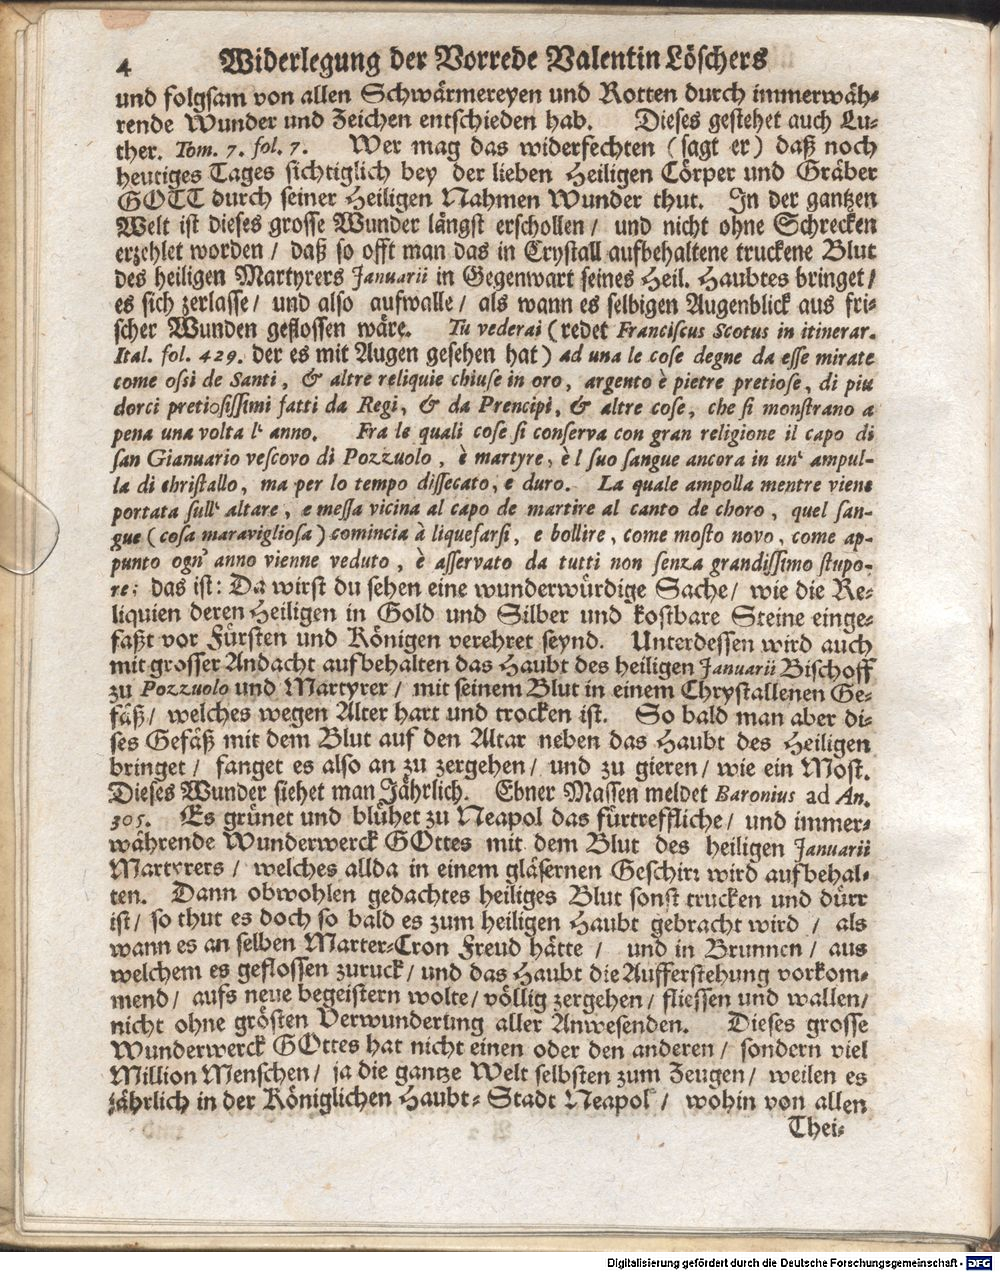 4 Widerlegung der Vorrede Valentin Löschers
und folgsam von allen Schwärmereyen und Rotten durch immerwäh-
rende Wunder und Zeichen entschieden hab. Dieses gestehet auch Lu-
ther. Tom. 7. fol. 7. Wer mag das widerfechten (sagt er) daß noch
heutiges Tages sichtiglich bey der lieben Heiligen Cörper und Gräber
GOTT durch seiner Heiligen Nahmen Wunder thut. In der gantzen
Welt ist dieses grosse Wunder längst erschollen / und nicht ohne Schrecken
erzehlet worden / daß so offt man das in Crystall aufbehaltene truckene Blut
des heiligen Martyrers Januarii in Gegenwart seines Heil. Haubtes bringet /
es sich zerlasse / und also aufwalle / als wann es selbigen Augenblick aus fri-
scher Wunden geflossen wäre. Tu vederai (redet Franciscus Scotus in itinerar.
Ital. fol. 429. der es mit Augen gesehen hat) ad una le cose degne da esse mirate
come ossi de Santi, & altre reliquie chiuse in oro, argento è pietre pretiose, di piu
dorci pretiosissimi fatti da Regi, & da Prencipi, & altre cose, che si monstrano a
pena una volta l' anno. Fra le quali cose si conserva con gran religione il capo di
san Gianuario vescovo di Pozzuolo, è martyre, è l suo sangue ancora in un' ampul-
la di christallo, ma per lo tempo dissecato, e duro. La quale ampolla mentre viene
portata sull' altare, e messa vicina al capo de martire al canto de choro, quel san-
gue (cosa maravigliosa) comincia à liquefarsi, e bollire, come mosto novo, come ap-
punto ogn' anno vienne veduto, è asservato da tutti non senza grandissimo stupo-
re: das ist: Da wirst du sehen eine wunderwürdige Sache / wie die Re-
liquien deren Heiligen in Gold und Silber und kostbare Steine einge-
faßt vor Fürsten und Königen verehret seynd. Unterdessen wird auch
mit grosser Andacht aufbehalten das Haubt des heiligen Januarii Bischoff
zu Pozzuolo und Martyrer / mit seinem Blut in einem Chrystallenen Ge-
fäß / welches wegen Alter hart und trocken ist. So bald man aber di-
ses Gefäß mit dem Blut auf den Altar neben das Haubt des Heiligen
bringet / fanget es also an zu zergehen / und zu gieren / wie ein Most.
Dieses Wunder siehet man Jährlich. Ebner Massen meldet Baronius ad An.
305. Es grünet und blühet zu Neapol das fürtreffliche / und immer-
währende Wunderwerck GOttes mit dem Blut des heiligen Januarii
Martyrers / welches allda in einem gläsernen Geschirr wird aufbehal-
ten. Dann obwohlen gedachtes heiliges Blut sonst trucken und dürr
ist / so thut es doch so bald es zum heiligen Haubt gebracht wird / als
wann es an selben Marter-Cron Freud hätte / und in Brunnen / aus
welchem es geflossen zuruck / und das Haubt die Aufferstehung vorkom-
mend / aufs neue begeistern wolte / völlig zergehen / fliessen und wallen /
nicht ohne grösten Verwunderung aller Anwesenden. Dieses grosse
Wunderwerck GOttes hat nicht einen oder den anderen / sondern viel
Million Menschen / ja die gantze Welt selbsten zum Zeugen / weilen es
jährlich in der Königlichen Haubt-Stadt Neapol / wohin von allen
Thei-
Digitalisierung gefördert durch die Deutsche Forschungsgemeinschaft - DFG